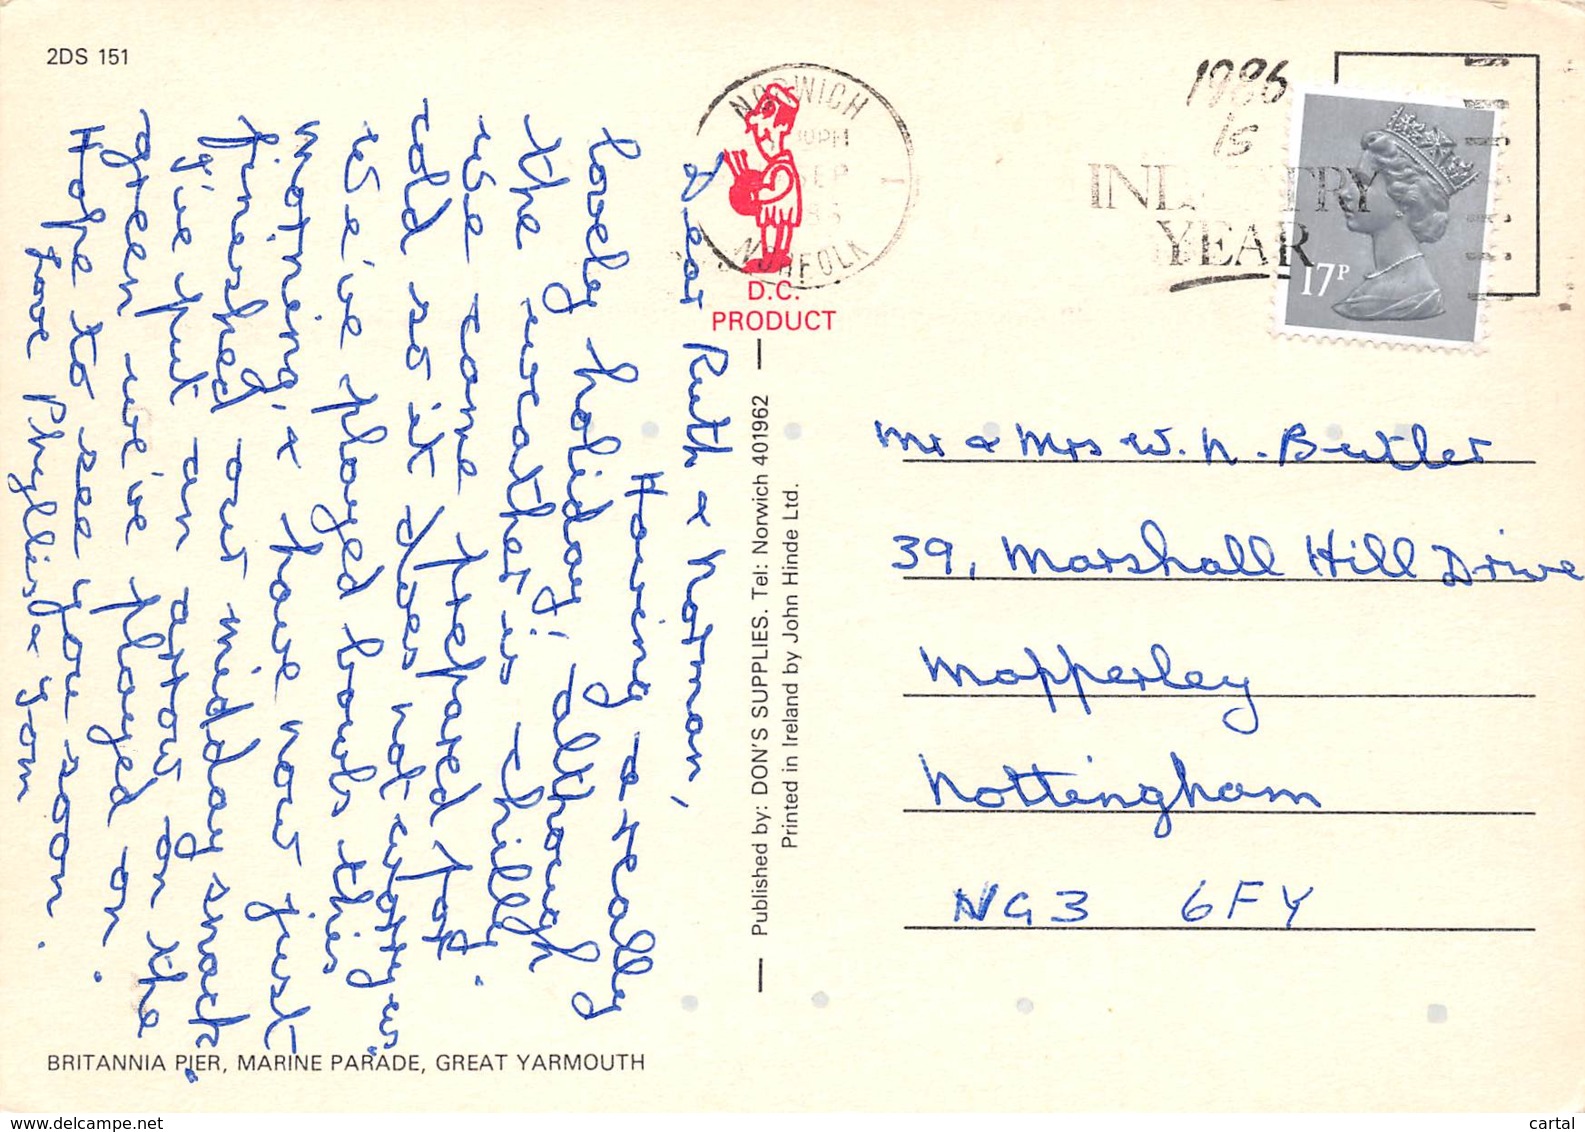 2DS 151
Dear Ruth & Norman,
Having a really
lovely holiday; although
the weather is chilly
we came prepared for
cold so it does not worry us.
We've played bowls this
morning, & have now just
finished our midday snack.
I've put an arrow on the
green we've played on.
Hope to see you soon.
Love Phyllis & Tom
BRITANNIA PIER, MARINE PARADE, GREAT YARMOUTH
NORWICH
PM
SEP
NORFOLK
D.C.
PRODUCT
Published by: DON'S SUPPLIES. Tel: Norwich 401962
Printed in Ireland by John Hinde Ltd.
1986
is
INDUSTRY
YEAR
17P
Mr & Mrs W. N. Butler
39, Marshall Hill Drive
Mapperley
Nottingham
NG3 6FY
www.delcampe.net
cartal